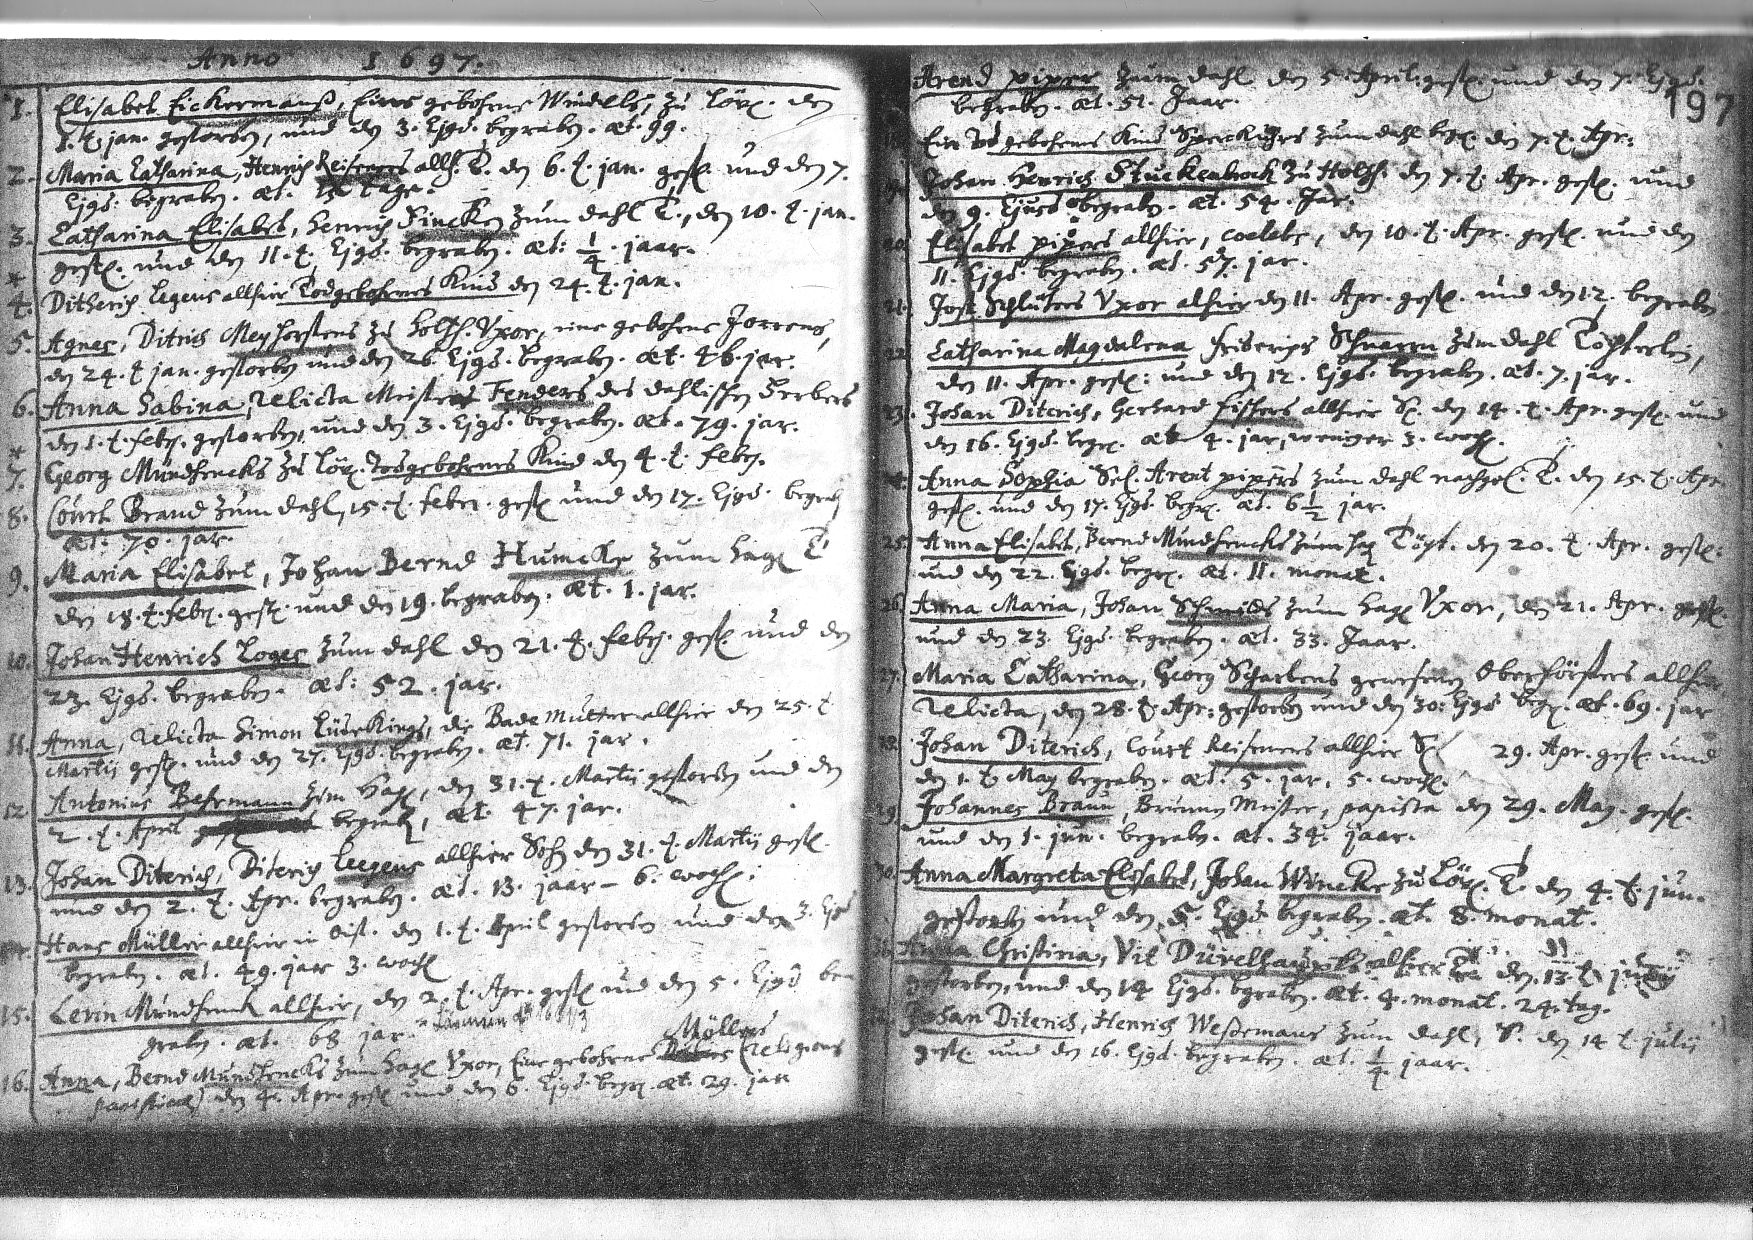 Anno 1697.
1. Elisabet Eickermanß, eine gebohrne Windels, zu Löx. den
1. t. jan. gestorben, und den 3. Ejgd. begraben. æt. 99.
2. Maria Catharina, Henrich Reiseners allh. T. den 6. t. jan. gest. und den 7.
Ejgd. begraben. æt. tage.
3. Catharina Elisabet, Henrich Fincken zum dahl T., den 10. t. jan.
gest. und den 11. t. Ejgd. begraben. æt: 1/4. jaar.
4. Ditherich Legens allhier Todgebohrnes Kind den 24. t. jan.
5. Agnes, Ditrich Meyhorstens zu Holtzh. Vxor, eine gebohrne Jorrens,
den 24. t jan. gestorben und den 26. Ejgd. begraben. æt. 46. jar.
6. Anna Sabina, relicta Meister Fenders des dahlissen
den 1. t. febr. gestorben, und den 3. Ejgd. begraben. æt. 79. jar.
7. Georg Mündhencks zu Löx. Todgebohrnes Kind den 4. t. febr.
8. Court Brand zum dahl, 15. t. febr. gest und den 17. Ejgd. begrab
æt. 70. jar.
9. Maria Elisabet, Johan Bernd Humcke zum Hag T
den 18. t. febr. gest. und den 19. begraben. æt. 1. jar.
10. Johan Henrich Loges zum dahl den 21. t. febr. gest und den
23. Ejgd. begraben. æt: 52. jar.
11. Anna, relicta Simon Lüerkings, die Bade Mutter allhier den 25. t
Martij gest. und den 27. Ejgd. begraben. æt. 71. jar.
12. Antonius Behrmann zum Hag, den 31. t. Martij gestorben und den
2. t. April begrab, æt. 47. jar.
13. Johan Diterich, Diterich Leegens allhier Sohn den 31. t. Martij gest.
und den 2. t. Apr. begraben. æt. 13. jaar – 6. woch.
Hans Müller allhier in den 1. t. April gestorben und den 3. Ejgd
begraben. æt. 49. jar 3. woch
15. Levin Mündhenck allhier, den 2. t. Apr. gest und den 5. Ejgd be
graben. æt. 68 jar.
Möllers
16. Anna, Bernd Mündhencks zum Hag Vxor, Eine gebohrne (religionis
den 4. Apr. gest und den 6. Ejgd. begr. æt. 29. jar
197
Arend piper zum dahl den 5. April. gest. und den 7. Ejgd.
begraben. æt. 51. Jaar.
Ein Tod gebohrnes Kind zum dahl begr. den 7. t. Apr.
Johan Henrich Stuckenbrock zu Holtzh. den 7. t. Apr. gest. und
den 9. Ejusd begraben. æt. 54. Jar.
20. Elisabet pipers allhier, coelebs, den 10. t. Apr. gest. und den
11. Ejgd. begraben. æt. 57. jar.
21. Jost Schlüters Vxor alhier den 11. Apr. gest. und den 12. begraben.
22. Catharina Magdalena Schnarrn zum dahl Töchterlein,
den 11. Apr. gest: und den 12. Ejgd. begraben. æt. 7. jar.
23. Johan Diterich, Gerhard Fischers allhier S. den 14. t. Apr. gest. und
den 16. Ejgd. begr. æt 4. jar, weniger 3. woch.
Anna Sophia Sel. Arent pipers zum dahl nachgel. T. den 15. t. Apr.
gest. und den 17. Ejgd. begr. æt. 6 1/2 jar.
25. Anna Elisabet, Bernd Mündhencks zum Hag Töcht. den 20. t. Apr. gest:
und den 22. Ejgd. begr. æt. 11. monat.
26. Anna Maria, Johan Schmids zum Hag Vxor, den 21. Apr. gest.
und den 23. Ejgd. begraben. æt. 33. Jaar.
27. Maria Catharina, Georg Scharbens gewesenen Oberförsters allhier
relicta, den 28. t. Apr. gestorben und den 30. Ejgd begr. æt. 69. jar
28. Johan Diterich, Court Reiseners allhier S 29. Apr. gest und
den 1. t. May begraben. æt. 5. jar, 5. woch.
29. Johannes Braun, Brunnen Meister, papista den 29. May. gest.
und den 1. jun. begraben. æt. 34. jaar.
30. Anna Margreta Elisabet, Johan Wincke zu Löx. T. den 4. t. jun.
gestorben und den 5. Ejgd. begraben. æt. 8. monat.
Anna Christina, Vit den 13. t.
gestorben, und den 14 Ejgd. begraben. æt. 4. monat. 24. tag.
Johan Diterich, Henrich Weßemans zum dahl, S. den 14 t julij
gest. und den 16. Ejgd. begraben. æt. 1/4 jaar.